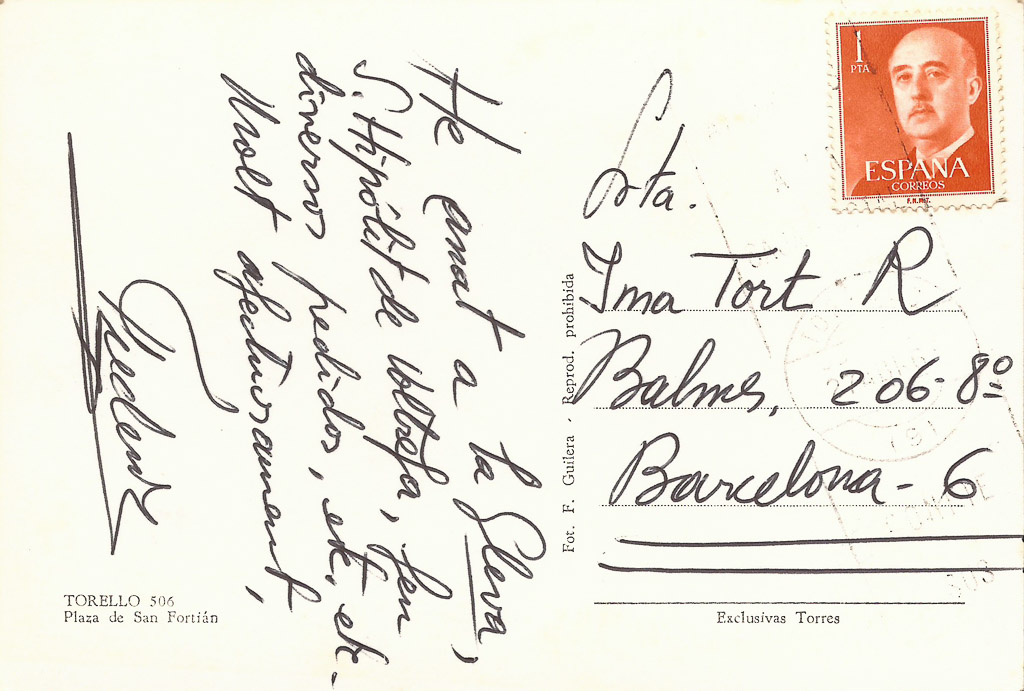 He anat a la Gleva,
S. Hipòlit de Voltregà, fem
diversos pedidos, etc, etc.
Molt afectuosament,
TORELLO 506
Plaza de San Fortián
Fot. F. Guilera - Reprod. prohibida
1
PTA
ESPAÑA
CORREOS
F.N.M.T.
Srta.
Ima Tort R
Balmes, 206-8º
Barcelona-6
Exclusivas Torres